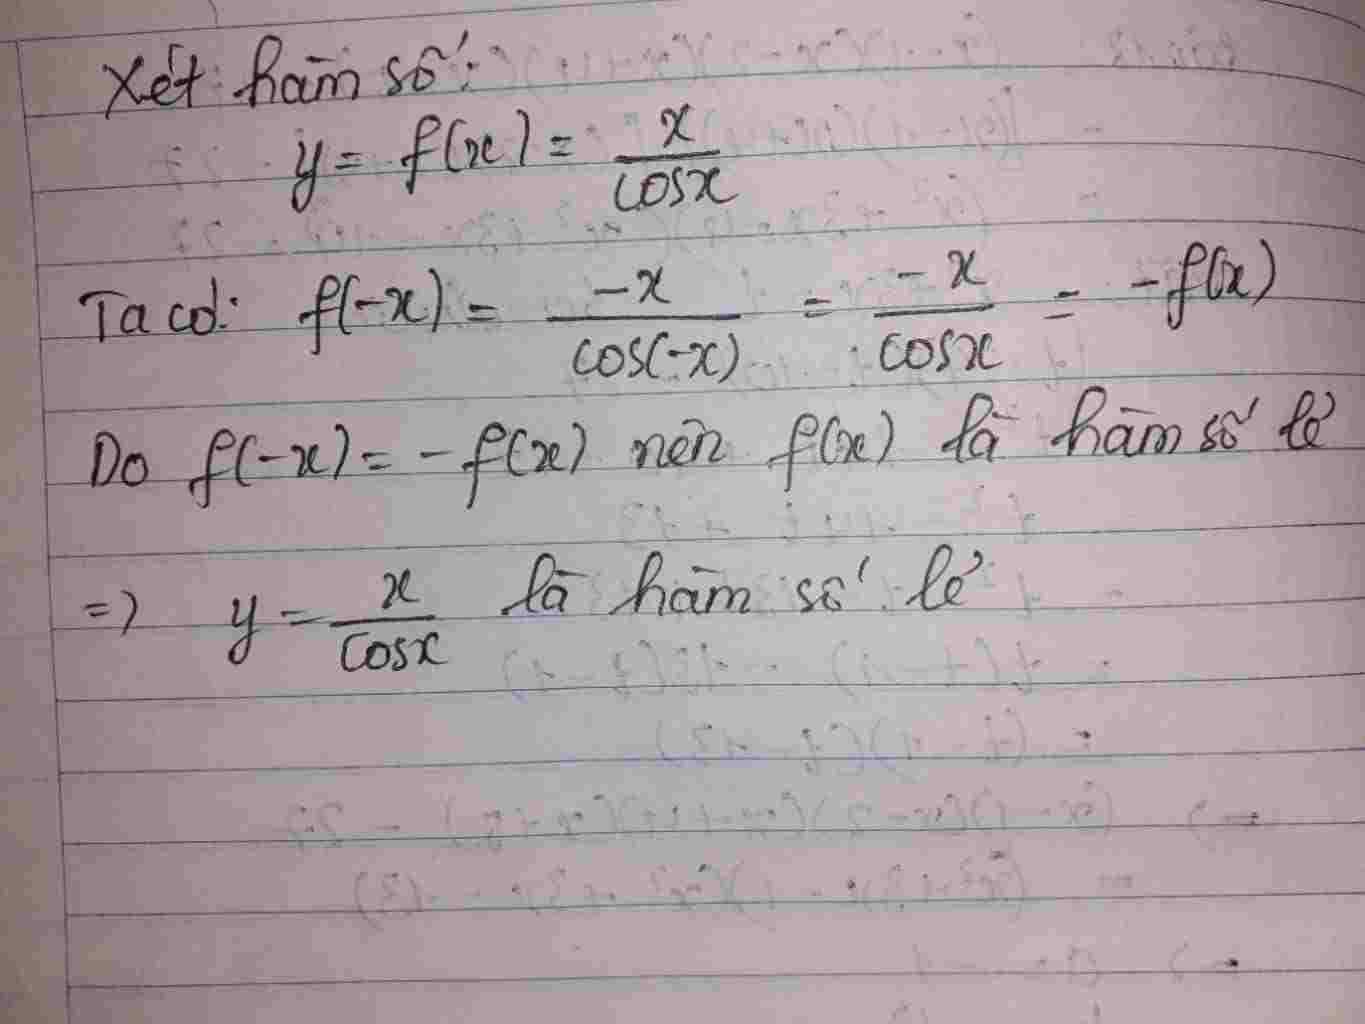 Xét hàm số:
y = f(x) = x/cosx
Ta có: f(-x) = -x/cos(-x) = -x/cosx = -f(x)
Do f(-x) = -f(x) nên f(x) là hàm số lẻ
=> y = x/cosx là hàm số lẻ